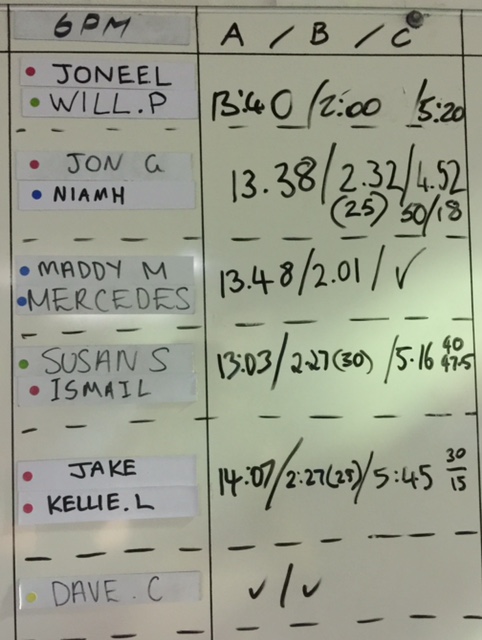 6PM A / B / C
JONEEL
WILL.P 13:40 / 2:00 / 5:20
JON G 13.38 / 2.32 / 4.52
NIAMH (25) 50/18
MADDY M 13.48 / 2.01 / ✓
MERCEDES
SUSAN S 13:03 / 2:27 (30) / 5.16 40
ISMAIL 47.5
JAKE 14:07 / 2:27 (25) / 5:45 30
KELLIE.L 15
DAVE.C ✓ / ✓